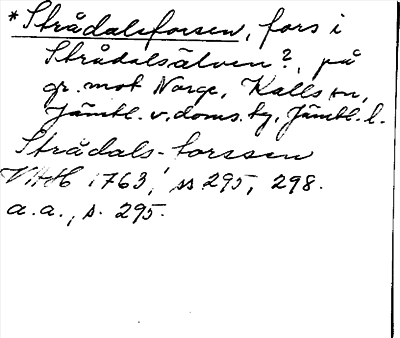 *Strådalsforsen, fors i
Strådalsälven?, på
gr. mot Norge, Kalls sn,
Jämtl. v. doms. tg, Jämtl. l.
Strådals-forssen
VHAH 1763, ss 295, 298.
a.a., s. 295.